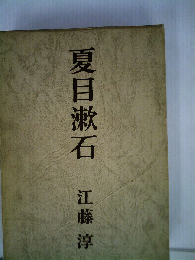 夏目漱石
江藤淳